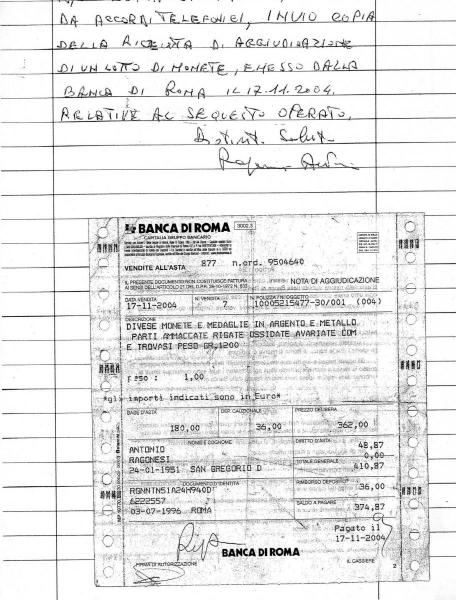 DA ACCORDI TELEFONICI, INVIO COPIA
DELLA RICEVUTA DI AGGIUDICAZIONE
DI UN LOTTO DI MONETE, EMESSO DALLA
BANCA DI ROMA IL 17.11.2004.
RELATIVE AL SEQUESTO OPERATO.
BANCA DI ROMA
3002.3
CAPITALIA GRUPPO BANCARIO
877 n.ord. 9504640
VENDITE ALL'ASTA
IL PRESENTE DOCUMENTO NON COSTITUISCE FATTURA
AI SENSI DELL'ARTICOLO 21 DEL D.P.R. 26-10-1972 N. 633
NOTA DI AGGIUDICAZIONE
DATA VENDITA N. VENDITA N. POLIZZA / N. OGGETTO
17-11-2004 7 10005215477-30/001 (004)
DESCRIZIONE
DIVESE MONETE E MEDAGLIE IN ARGENTO E METALLO
PARTI AMMACCATE RIGATE OSSIDATE AVARIATE COM
E TROVASI PESO GR.1200
1,00
*gli importi indicati sono in Euro*
BASE D'ASTA DEP. CAUZIONALE PREZZO DELIBERA
180,00 36,00 362,00
NOME E COGNOME DIRITTO D'ASTA
ANTONIO 48,87
RAGONESI 0,00
TOTALE GENERALE
24-01-1951 SAN GREGORIO D 410,87
DOCUMENTO IDENTITA' RIMBORSO DEPOSITO
RGNNTN51A24H940D 36,00
6222557 SALDO A PAGARE
03-07-1996 ROMA 374,87
Pagato il
17-11-2004
BANCA DI ROMA
FIRMA DI AUTORIZZAZIONE IL CASSIERE
2